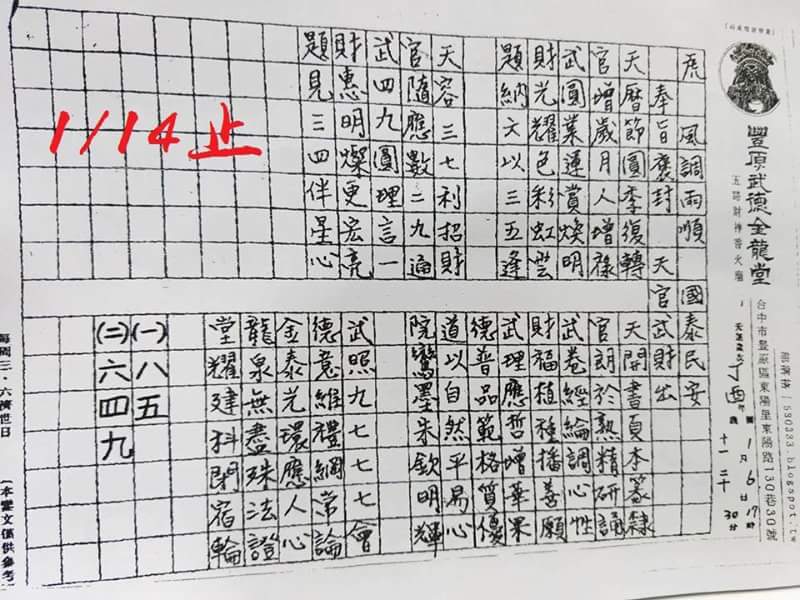 豐原武德金龍堂
五路財神香火廟
台中市豐原區東陽里東陽路130巷30號
部落格 | 580383.blogspot.tw
天運歲次丁酉年 國1月6日17時30分
歲十一 二十
虎 風調雨順 國泰民安
奉旨褒封 天官武財出
天曆節圓季復轉
官增歲月人增祿
武圓業運賞煥明
財光耀色彩虹雲
題納文以三五逢
天容三七利招財
官隨應數二九遍
武四九圓理言一
財惠明燦更宏亮
題見三四伴星心
天開書頁李篆隸
官朗於熟精研誦
武卷經綸調心性
財福植種播善願
武理應哲增華果
德普品範格質優
道以自然平易心
院鸞墨朱欽明輝
武照九七七七會
德意維禮綱常論
金泰光環應人心
龍泉無盡殊法證
堂耀建科閑宿輪
(一)八五
(二)六四九
1/14止
每周三.六濟世日
(本鸞文僅供參考